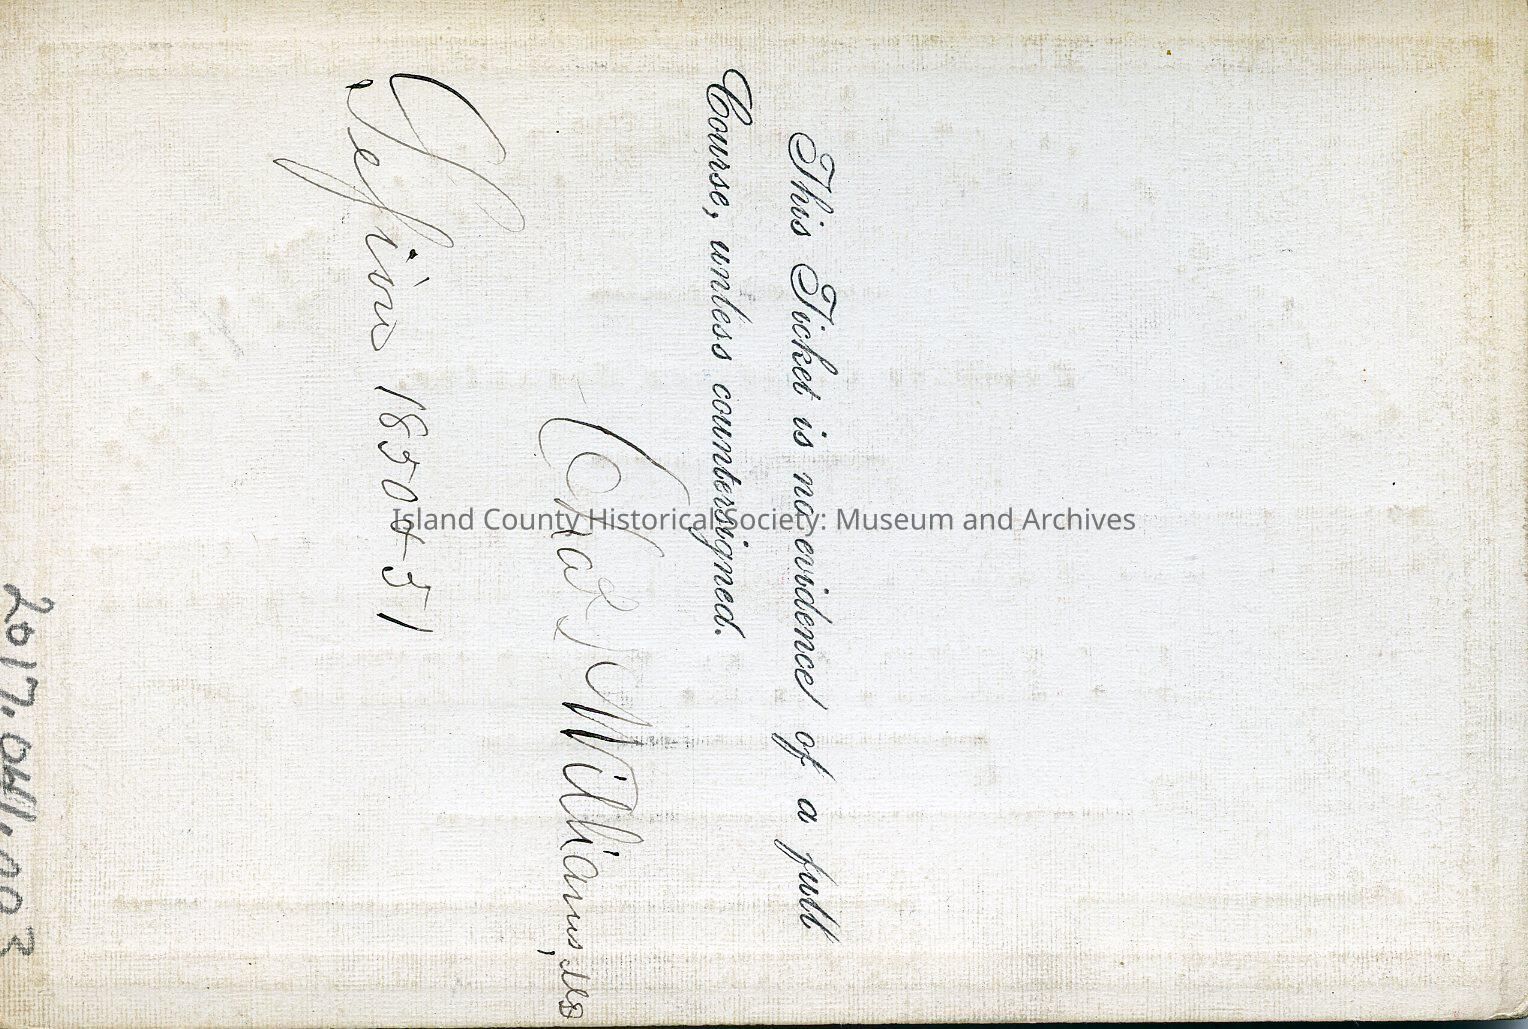 This Ticket is no evidence of a full
Course, unless countersigned.
Chas Williams,
Session 1850 & 51
2017.041.003
Island County Historical Society: Museum and Archives